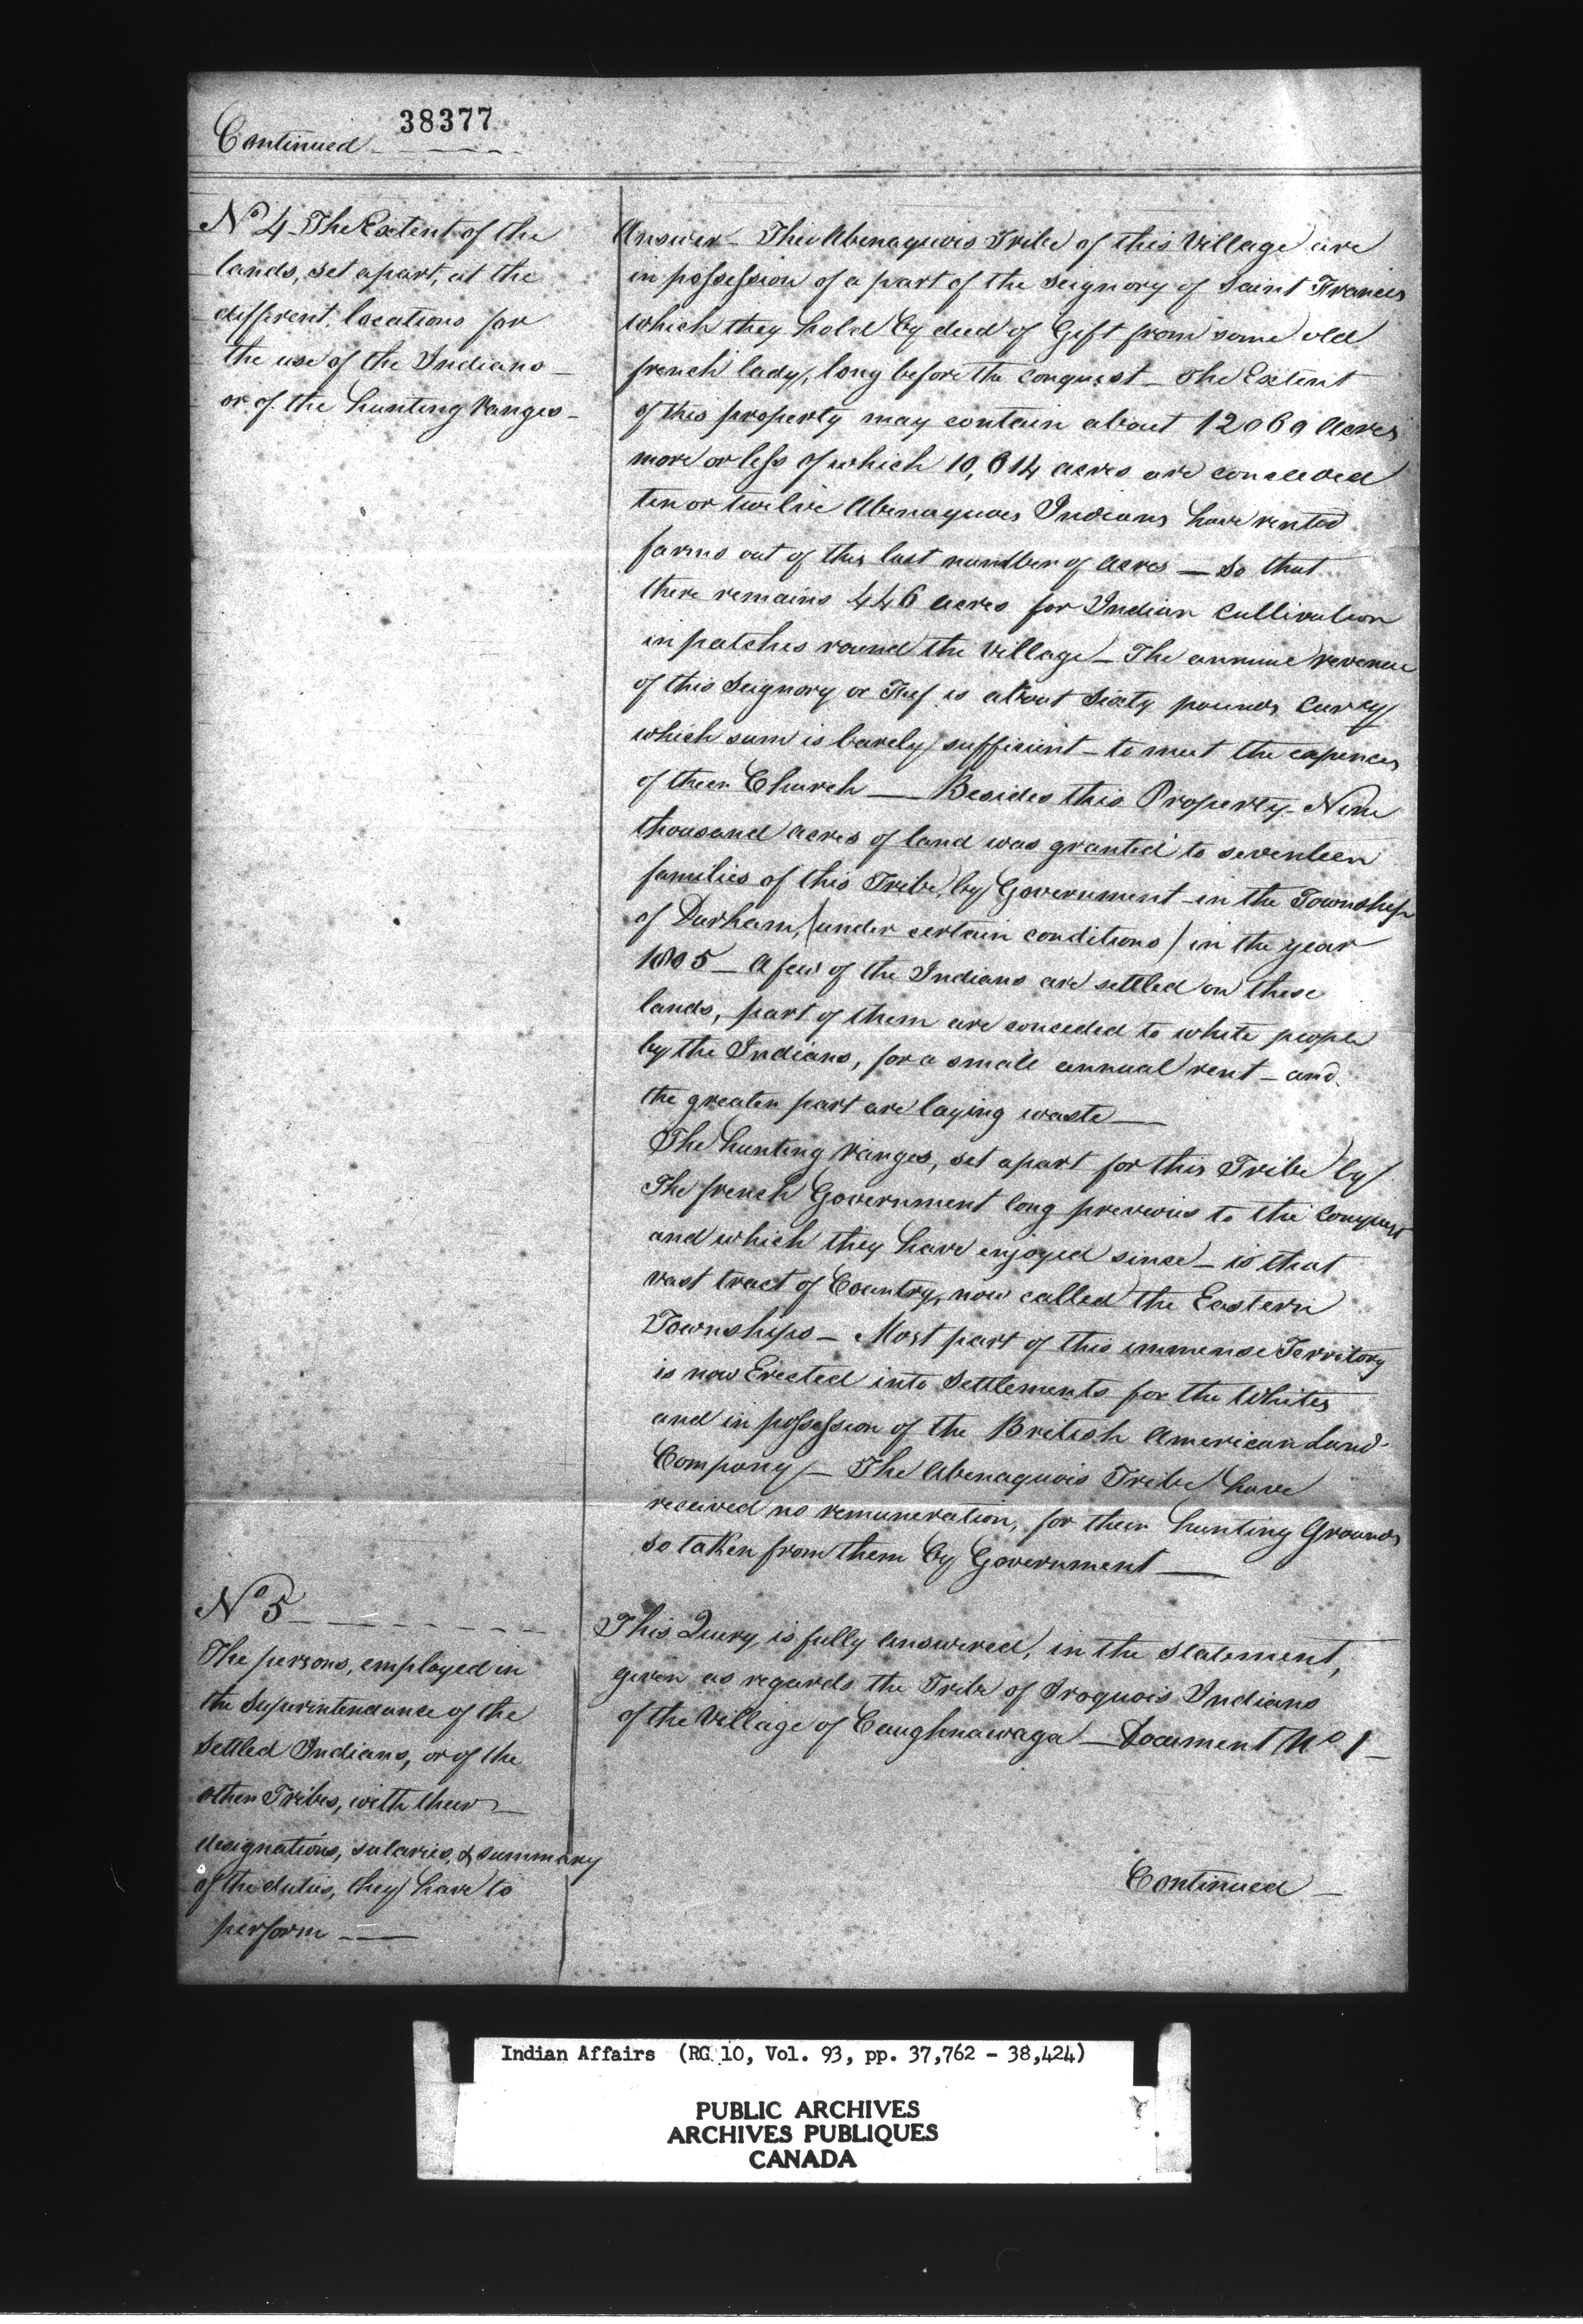 38377
Continued
No 4 The Extent of the
lands, set apart, at the
different, locations for
the use of the Indians _
or of the hunting ranges _
Answer _ The Abenaquois Tribe of this Village are
in possession of a part of the Seignory of Saint Francis
which they hold by deed of Gift from some old
french lady, long before the Conquest _ The Extent
of this property may contain about acres
more or less of which acres are conceded
ten or twelve Abenaquois Indians have rented
farms out of this last number of acres _ So that
there remains 446 acres for Indian Cultivation
in patches round the Village _ The revenue
of this Seignory or Fief is about Sixty pounds Curcy
which sum is barely sufficient _ to meet the expences
of their Church _ Besides this Property _ Nine
thousand acres of land was granted to seventeen
families of this Tribe, by Government _ in the Township
of Durham, (under certain conditions) in the year
1805 _ A few of the Indians are settled on these
lands, part of them are conceded to white people
by the Indians, for a small annual rent _ and
the greater part are laying waste _
The hunting ranges, set apart for this Tribe by
The french Government long previous to the Conquest
and which they have enjoyed since _ is that
vast tract of Country, now called the Eastern
Townships _ Most part of this immense Territory
is now Erected into Settlements for the Whites
and in possession of the British American Land
Company _ The Abenaquois Tribe have
received no remuneration, for their hunting Grounds
so taken from them by Government _
No 5 _ _ _ _ _ _
The persons, employed in
the Superintendance of the
Settled Indians, or of the
other Tribes, with their _
designations, salaries, & summary
of the duties, they have to
perform _ _
This Query, is fully answered, in the statement,
given as regards the Tribe of Iroquois Indians
of the Village of Caughnawaga _ Document No 1 _
Continued _
Indian Affairs (RG 10, Vol. 93, pp. 37,762 - 38,424)
PUBLIC ARCHIVES
ARCHIVES PUBLIQUES
CANADA